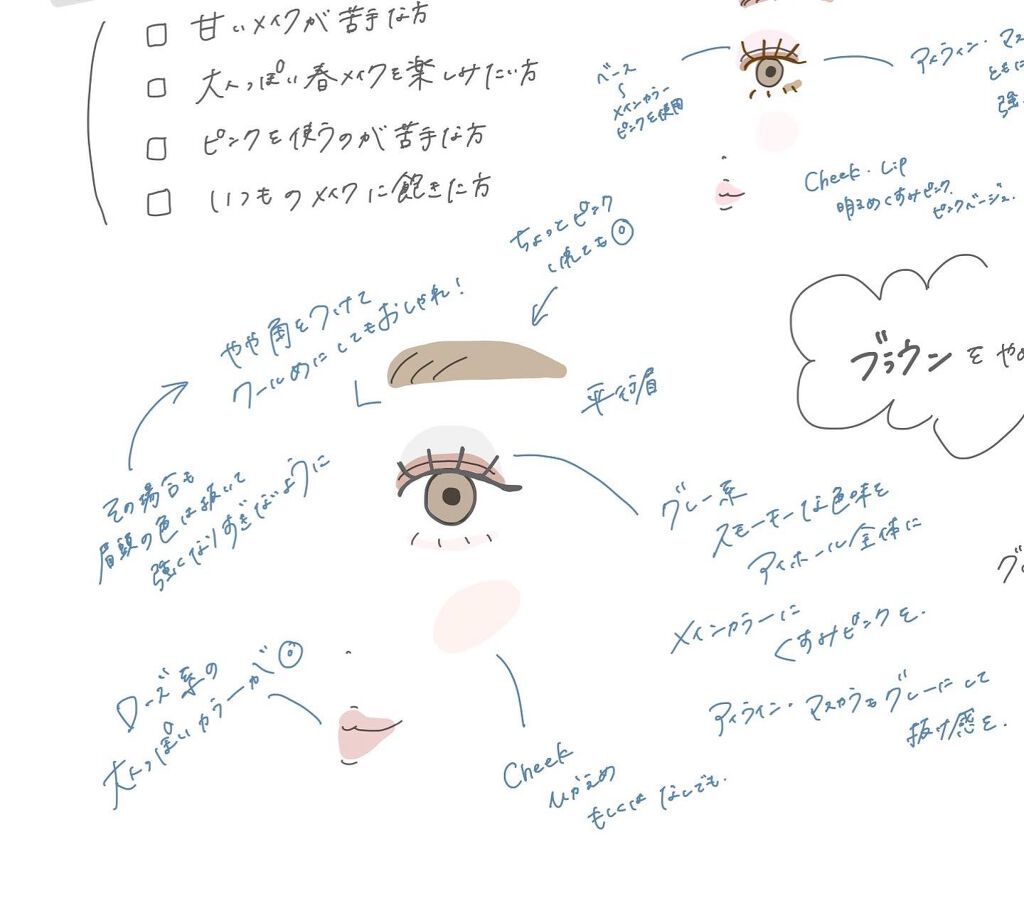 □ 甘いメイクが苦手な方
□ 大人っぽい春メイクを楽しみたい方
□ ピンクを使うのが苦手な方
□ いつものメイクに飽きた方
ベース
〜
メインカラー
ピンクを使用
アイライン・マス
ともに
強
Cheek・Lip
明るめくすみピンク、
ピンクベージュ。
ちょっとピンク
いれても◎
やや角をつけて
クールめにしてもおしゃれ!
平行眉
ブラウンをやめ
その場合も
眉頭の色は抜いて
強くなりすぎないように
グレー系
スモーキーな色味を
アイホール全体に
メインカラーに
くすみピンクを。
アイライン・マスカラもグレーにして
抜け感を。
ローズ系の
大人っぽいカラーが◎
Cheek
ひかえめ
もしくは なしでも。